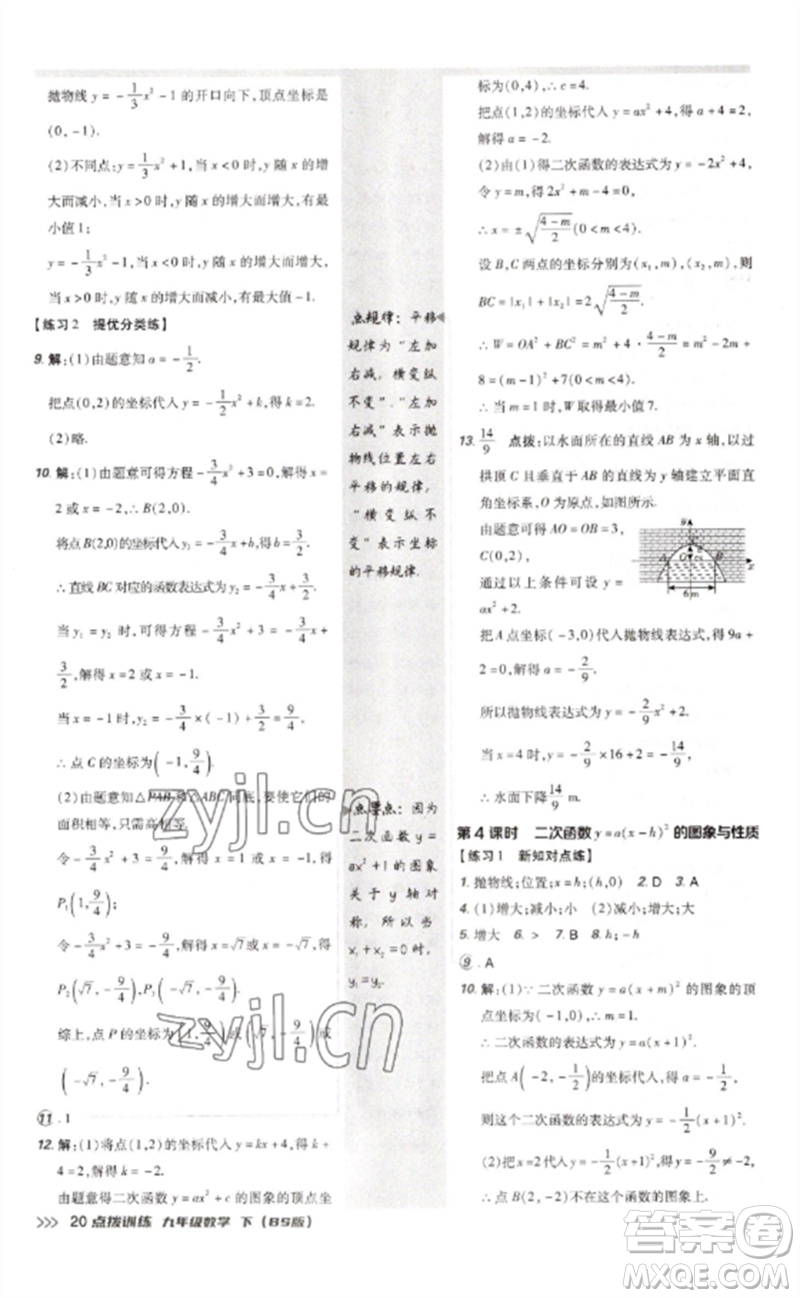 抛物线 y = -1/3x² - 1 的开口向下,顶点坐标是
(0, -1).
(2)不同点:y = 1/3x² + 1,当 x < 0 时,y 随 x 的增
大而减小,当 x > 0 时,y 随 x 的增大而增大,有最
小值 1;
y = -1/3x² - 1,当 x < 0 时,y 随 x 的增大而增大,
当 x > 0 时,y 随 x 的增大而减小,有最大值 -1.
【练习2 提优分类练】
9. 解:(1)由题意知 a = -1/2.
把点(0,2)的坐标代入,得 k = 2.
(2)略.
10. 解:(1)由题意可得方程 -3/4x² + 3 = 0,解得 x =
2 或 x = -2,∴ B(2,0).
将点 B(2,0)的坐标代入 y₂ = -3/4x + b,得 b =
3/2,
∴ 直线 BC 对应的函数表达式为 y₂ = -3/4x + 3/2.
当 y₁ = y₂ 时,可得方程 -3/4x² + 3 = -3/4x +
3/2,解得 x = 2 或 x = -1.
当 x = -1 时,y₂ = -3/4 × (-1) + 3/2 = 9/4.
∴ 点 C 的坐标为(-1, 9/4).
(2)由题意知△PAB和△ABC 同底,要使它们的
面积相等,只需高相等.
令 -3/4x² + 3 = 9/4,解得 x = 1 或 x = -1(舍去),
P₁(1, 9/4);
令 -3/4x² + 3 = -9/4,解得 x = √7 或 x = -√7,
P₂(√7, -9/4), P₃(-√7, -9/4).
综上,点 P 的坐标为(1, 9/4)或(√7, -9/4)或
(-√7, -9/4).
11. 1
12. 解:(1)将点(1,2)的坐标代入 y = kx + 4,得 k +
4 = 2,解得 k = -2.
由题意得二次函数 y = ax² + c 的图象的顶点坐
>>> 20 点拨训练 九年级数学 下(BS版)
点规律:平移
规律为“左加
右减,横变纵
不变”.“左加
右减”表示抛
物线位置左右
平移的规律,
“横变纵不
变”表示坐标
的平移规律.
点警点:因为
二次函数 y =
ax² + 1 的图象
关于 y 轴对
称,所以当
x₁ + x₂ = 0 时,
y₁ = y₂.
标为(0,4),∴ c = 4.
把点(1,2)的坐标代入 y = ax² + 4,得 a + 4 = 2,
解得 a = -2.
(2)由(1)得二次函数的表达式为 y = -2x² + 4,
令 y = m,得 2x² + m - 4 = 0,
∴ x = ±√((4 - m)/2) (0 < m < 4).
设 B,C 两点的坐标分别为(x₁,m),(x₂,m),则
BC = |x₁| + |x₂| = 2√((4 - m)/2).
∴ W = OA² + BC² = m² + 4·(4 - m)/2 = m² - 2m +
8 = (m - 1)² + 7(0 < m < 4).
∴ 当 m = 1 时,W 取得最小值 7.
13. 14/9 点拨:以水面所在的直线 AB 为 x 轴,以过
拱顶 C 且垂直于 AB 的直线为 y 轴建立平面直
角坐标系,O 为原点,如图所示.
由题意可得 AO = OB = 3,
C(0,2),
通过以上条件可设 y =
ax² + 2.
把 A 点坐标(-3,0)代入抛物线表达式,得 9a +
2 = 0,解得 a = -2/9,
所以抛物线表达式为 y = -2/9x² + 2.
当 x = 4 时,y = -2/9 × 16 + 2 = -14/9,
∴ 水面下降 14/9 m.
第 4 课时 二次函数 y = a(x - h)² 的图象与性质
【练习1 新知对点练】
1. 抛物线;位置;x = h;(h,0) 2. D 3. A
4. (1)增大;减小;小 (2)减小;增大;大
5. 增大 6. > 7. B 8. h; -h
9. A
10. 解:(1)∵ 二次函数 y = a(x + m)² 的图象的顶
点坐标为(-1,0),∴ m = 1.
∴ 二次函数的表达式为 y = a(x + 1)².
把点 A(-2, -1/2)的坐标代入,得 a = -1/2,
则这个二次函数的表达式为 y = -1/2(x + 1)².
(2)把 x = 2 代入,得 y = -9/2 ≠ -2,则点 B 不在
这个函数的图象上.
zyjl.cn
zyjl.cn
答案圈
MXQE.COM